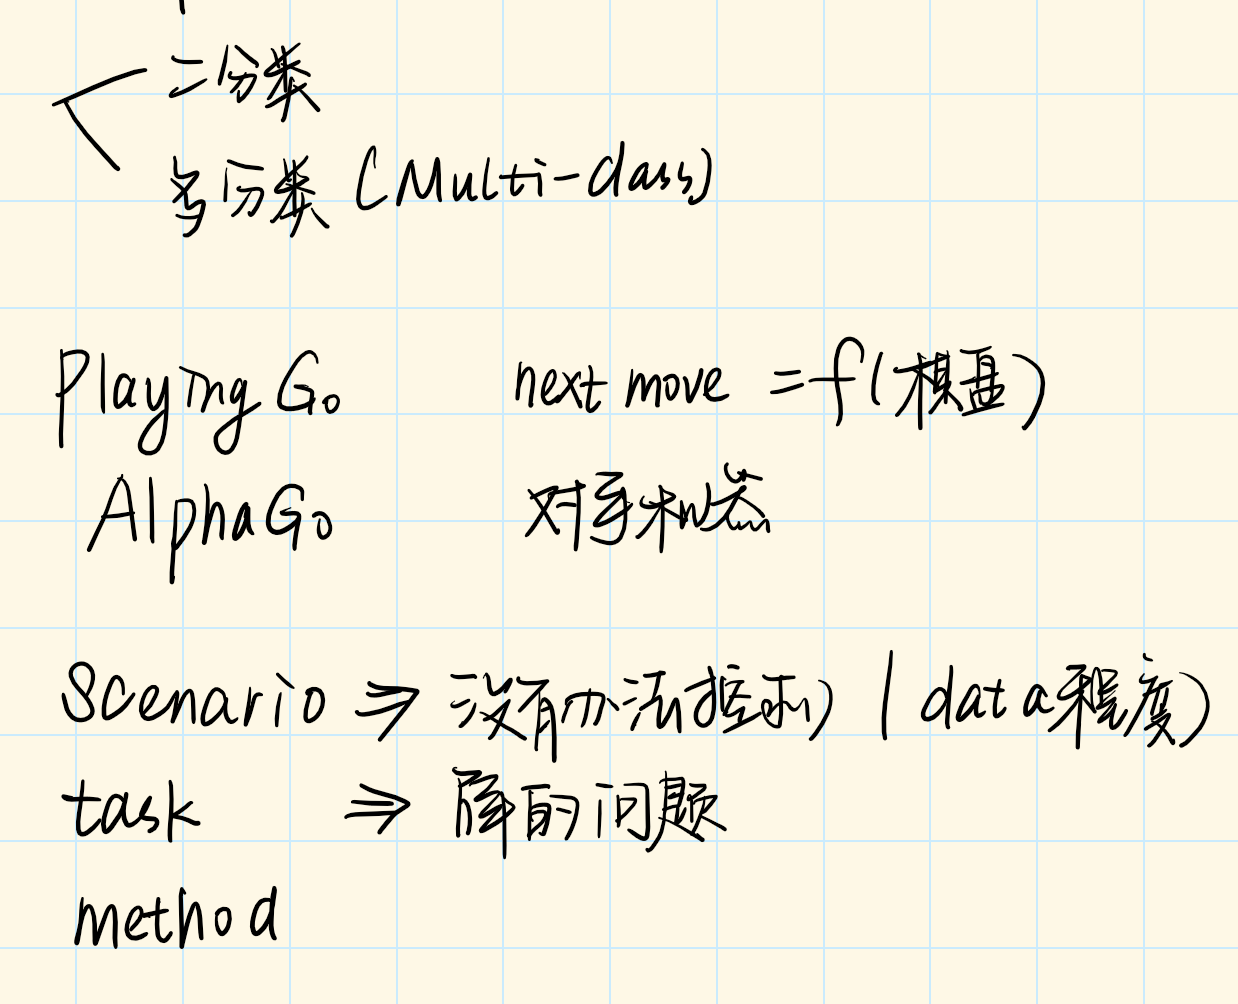 二分类
多分类 (Multi-class)
Playing Go next move = f(棋盘)
AlphaGo 对手机器
Scenario ⇒ 没有办法控制 (data程度)
task ⇒ 解的问题
method